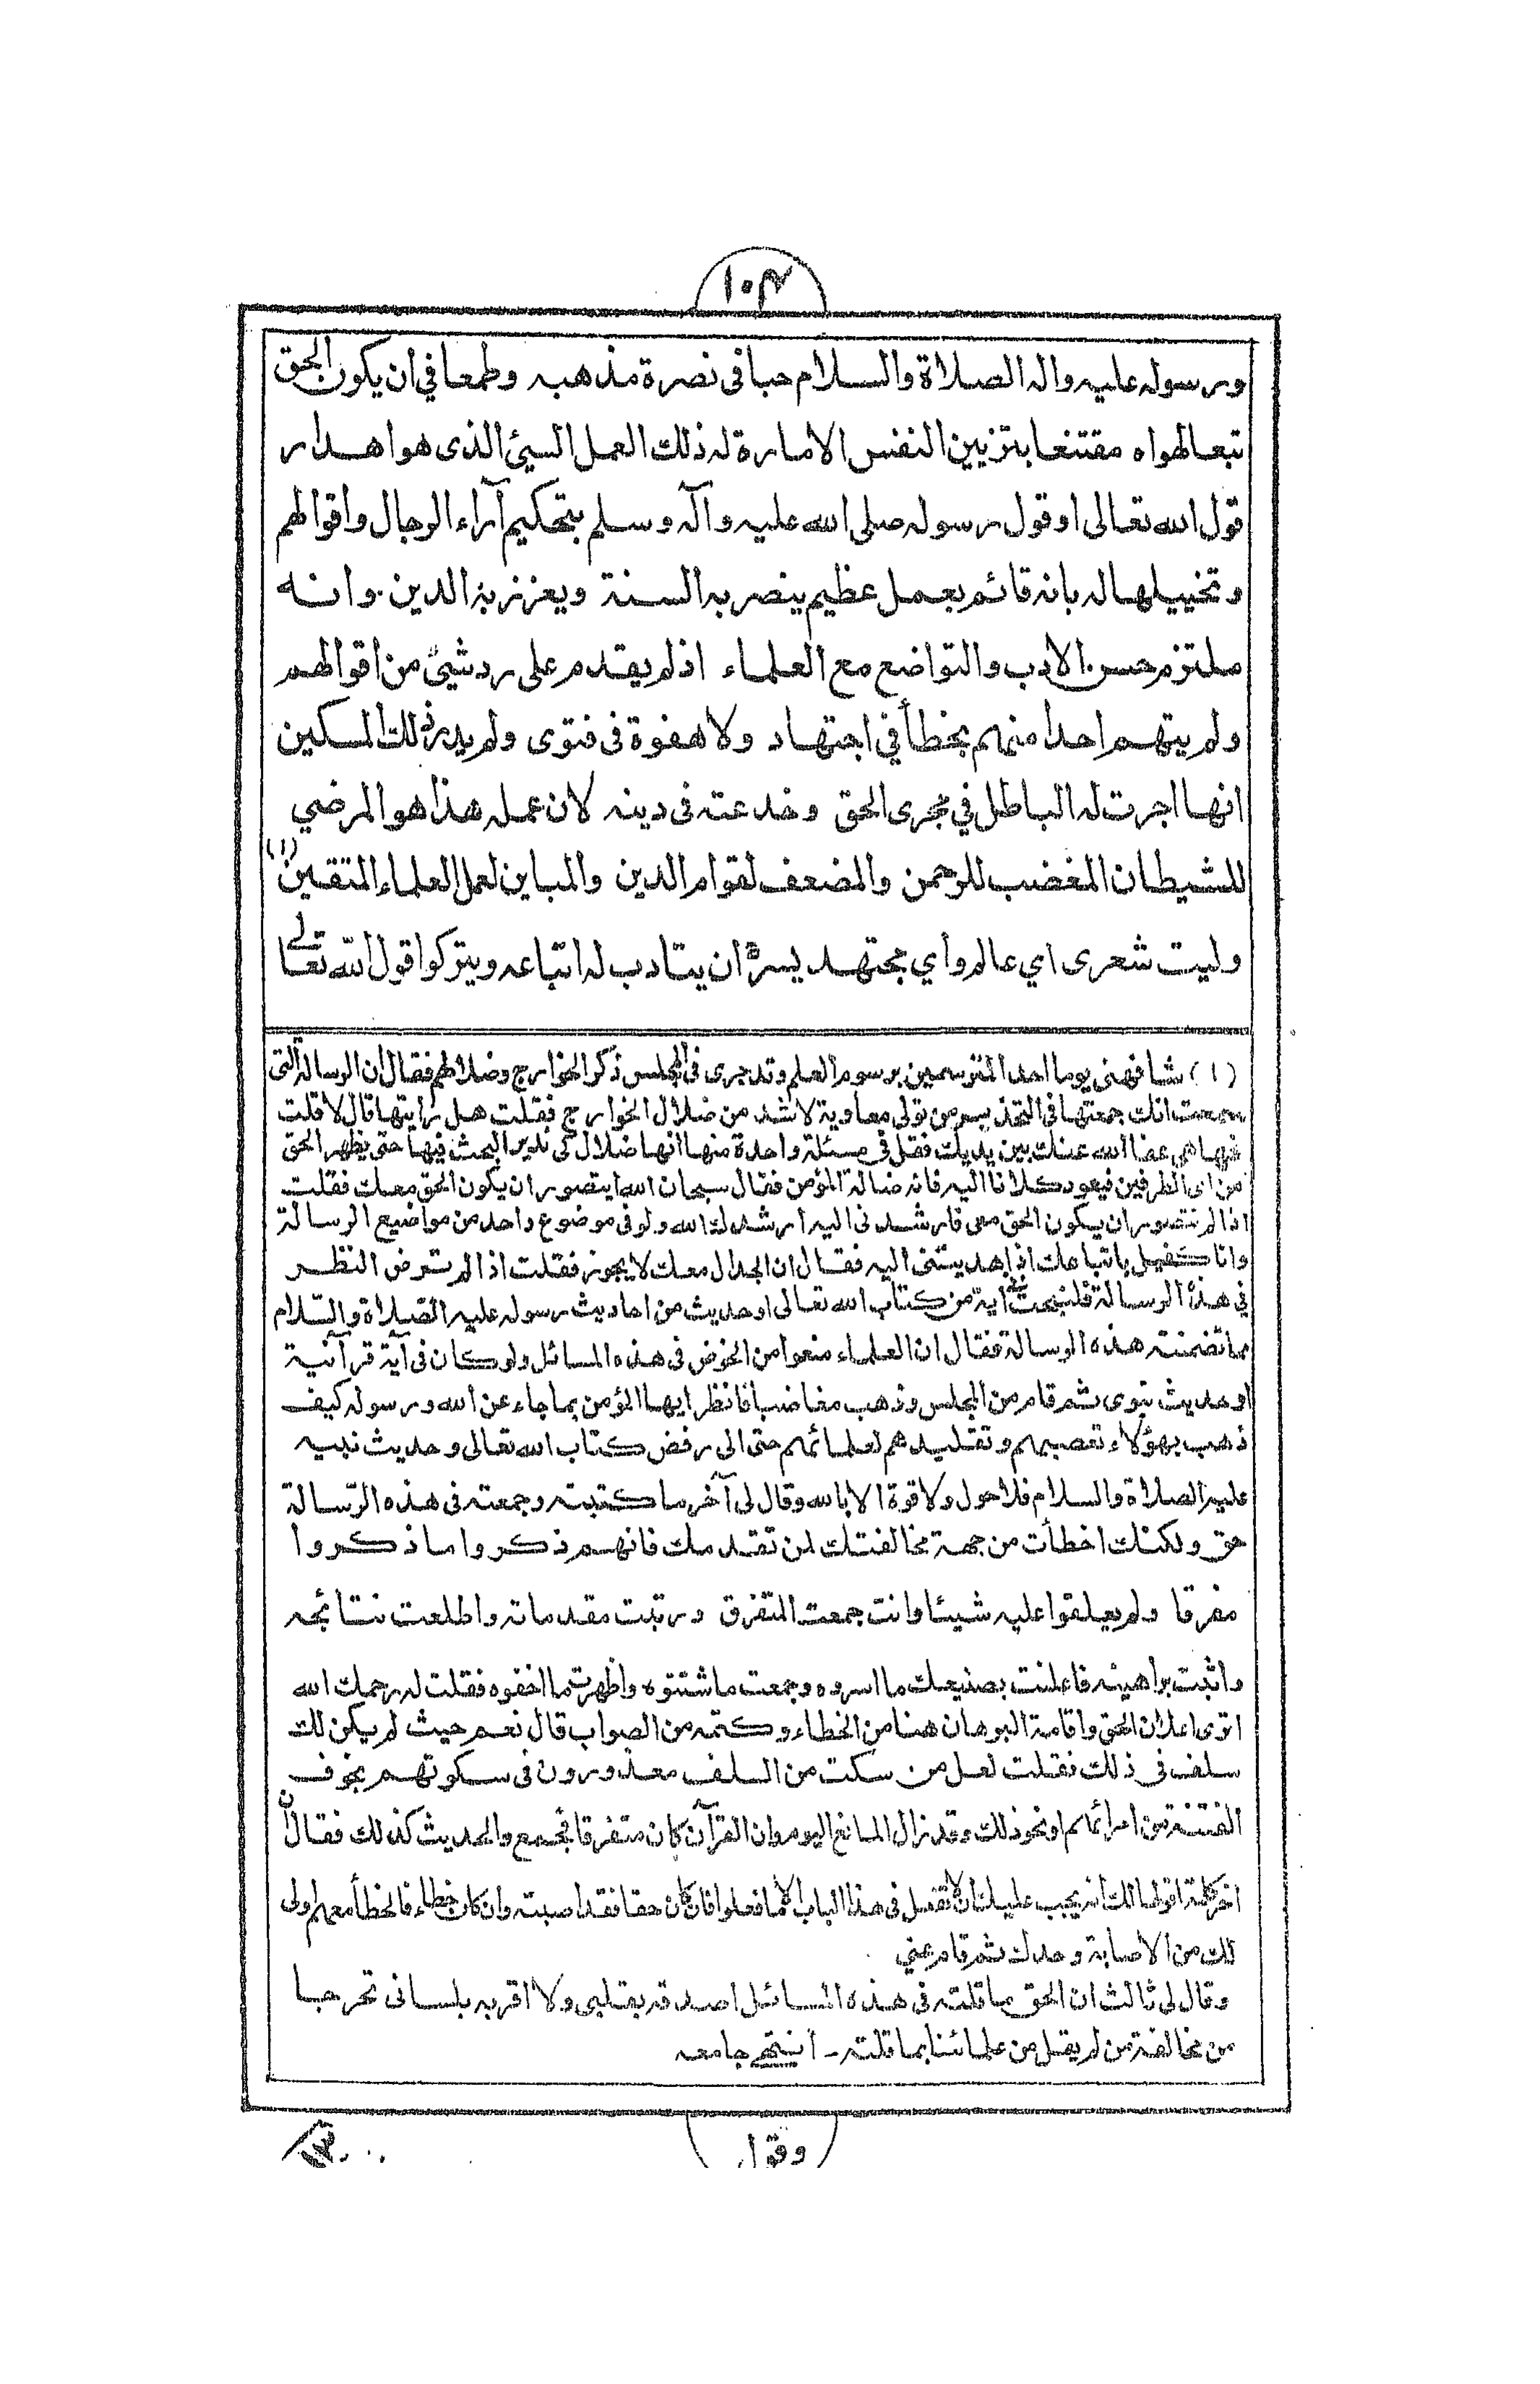 ١٠٤
ورسوله عليه واله الصلاة والسلام حبا فى نصرة مذهبه وطمعا في ان يكون الحق
تبعا لهواه مقتنعا بتزيين النفس الامارة له ذلك العمل السيئ الذى هو اهدار
قول الله تعالى او قول رسوله صلى الله عليه وآله وسلم بتحكيم آراء الرجال واقوالهم
وتخييلها له بانه قائم بعمل عظيم ينصر به السنة ويعزز به الدين وانه
ملتزم حسن الادب والتواضع مع العلماء اذ لم يقدم على رد شيئ من اقوالهم
ولم يتهم احدا منهم بخطأ في اجتهاد ولا هفوة فى فتوى ولم يدر ذلك المسكين
انها اجرت له الباطل في مجرى الحق وخدعته فى دينه لان عمله هذا هو المرضي
للشيطان المغضب للرحمن والمضعف لقوام الدين والمباين لعمل العلماء المتقين (١)
وليت شعرى اي عالم وأي مجتهد يسره ان يتادب له اتباعه ويتركوا قول الله تعالى
(١) شافهنى يوما احد المترسمين برسوم العلم وقد جرى فى المجلس ذكر الخوارج وضلالهم فقال ان الرسالة التى
سمعت انك جمعتها فى التحذير من تولى معاوية لاشد من ضلال الخوارج فقلت هل رايتها قال لا قلت
فها هي عفا الله عنك بين يديك فقل فى مسئلة واحدة منها انها ضلال لكى ندير البحث فيها حتى يظهر الحق
من اى الطرفين فيعود كلانا اليه فانه ضالة المؤمن فقال سبحان الله ايتصور ان يكون الحق معك فقلت
اذا لم تتصور ان يكون الحق معى فارشدنى اليه ارشدك الله ولو فى موضوع واحد من مواضيع الرسالة
وانا كفيل باتباعك اذا هديتنى اليه فقال ان الجدال معك لا يجوز فقلت اذا لم ترض النظر
في هذه الرسالة فلنبحث في آية من كتاب الله تعالى او حديث من احاديث رسوله عليه الصلاة والسلام
مما تضمنته هذه الرسالة فقال ان العلماء منعوا من الخوض فى هذه المسائل ولو كان فى آية قرآنية
او حديث نبوى ثم قام من المجلس وذهب مغاضبا فانظر ايها المؤمن بما جاء عن الله ورسوله كيف
ذهب بهؤلاء تعصبهم وتقليدهم لعلمائهم حتى الى رفض كتاب الله تعالى وحديث نبيه
عليه الصلاة والسلام فلا حول ولا قوة الا بالله وقال لى آخر ما كتبته وجمعته فى هذه الرسالة
حق ولكنك اخطأت من جهة مخالفتك لمن تقدمك فانهم ذكروا ما ذكروا
مفرقا ولم يعلقوا عليه شيئا وانت جمعت المتفرق ورتبت مقدماته واطلعت نتائجه
واثبت براهينه فاعلنت بصنيعك ما اسروه وجمعت ما شتتوه واظهرت ما اخفوه فقلت له رحمك الله
اترى اعلان الحق واقامة البرهان هنا من الخطاء وكتمه من الصواب قال نعم حيث لم يكن لك
سلف في ذلك فقلت لعل من سكت من السلف معذورون فى سكوتهم بخوف
الفتنة من امرائهم او نحو ذلك وقد زال المانع اليوم وان القرآن كان متفرقا فجمع والحديث كذلك فقال ان
اخر كلمة اقولها لك انه يجب عليك ان لا تفعل فى هذا الباب الا ما فعلوا فان كان حقا فقد اصبته وان كان خطاء فالخطأ معهم اولى
لك من الاصابة وحدك ثم قام عني
وقال لى ثالث ان الحق ما قلته فى هذه المسائل اصدقه بقلبى ولا اقر به بلسانى تحرجا
من مخالفة من لم يقل من علمائنا بما قلته ـ انتهى جامعه
وقول